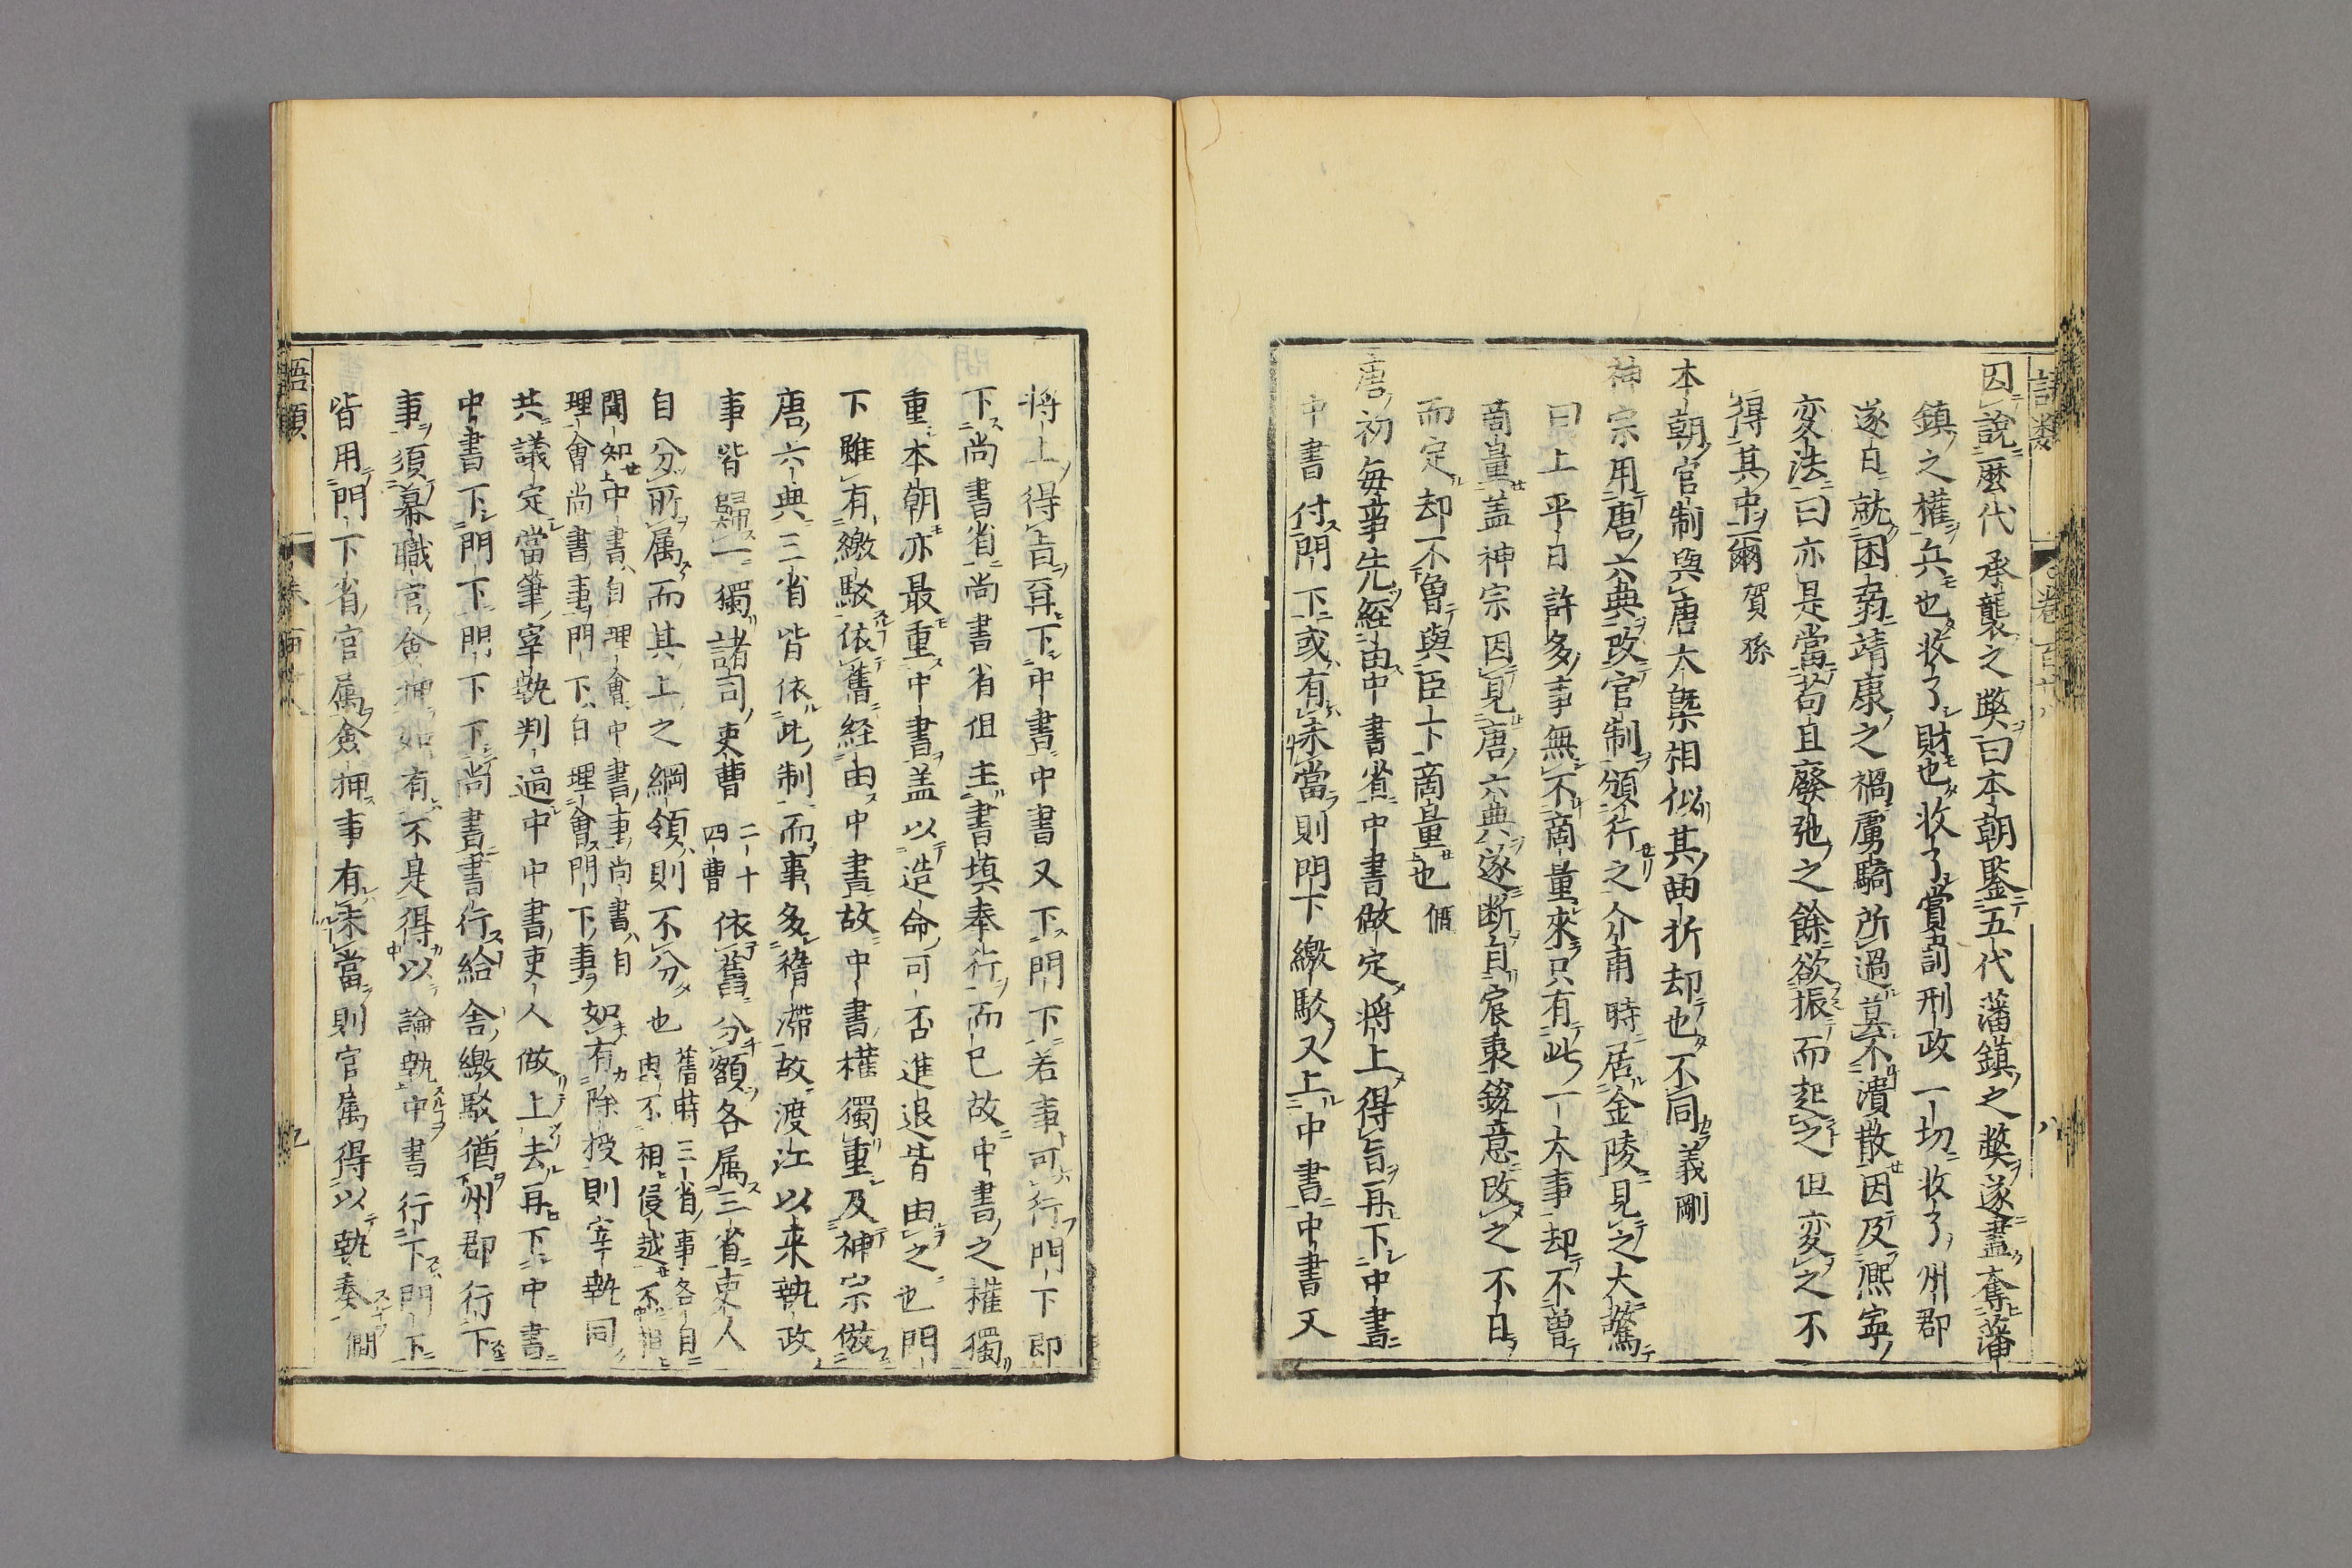 語類 卷百廿八 八
因說歷代承襲之獘曰本朝鑒五代藩鎮之獘遂盡奪藩
鎮之權兵也收了財也收了賞罰刑政一切收了州郡
遂日就困弱靖康之禍虜騎所過莫不潰散因及熙寧
変法曰亦是當苟且廢弛之餘欲振而起之但変之不
得其中爾 賀孫
本朝官制與唐大槩相似其曲折却也不同 義剛
神宗用唐六典改官制頒行之介甫時居金陵見之大驚
曰上平日許多事無不商量來只有此一大事却不曽
商量盖神宗因見唐六典遂断自宸衷鋭意改之不日
而定却不曽與臣下商量也 僩
唐初毎事先經由中書省中書做定將上得旨再下中書
中書付門下或有未當則門下繳駁又上中書中書又
將上得旨再下中書中書又下門下若事可行門下即
下尚書省尚書省但主書填奉行而已故中書之權獨
重本朝亦最重中書盖以造命可否進退皆由之也門
下雖有繳駁依舊経由中書故中書權獨重及神宗倣
唐六典三省皆依此制而事多稽滯故渡江以来執政
事皆歸一獨諸司吏曹 二十四曹 依舊分額各属三省吏人
自分所属而其上之綱領則不分也 舊時三省事各自理會不相侵越不相
聞知中書自理會中書事尚書自理會尚書事門下自理會門下事 如有除授則宰執同
共議定當筆宰執判過中中書吏人做上去再下中書
中書下門下門下下尚書書行給舎繳駁猶州郡行下
事須幕職官僉押如有不是得以論執中書行下門下
皆用門下省官属僉押事有未當則官属得以執奏 僩
語類 卷百廿八 九